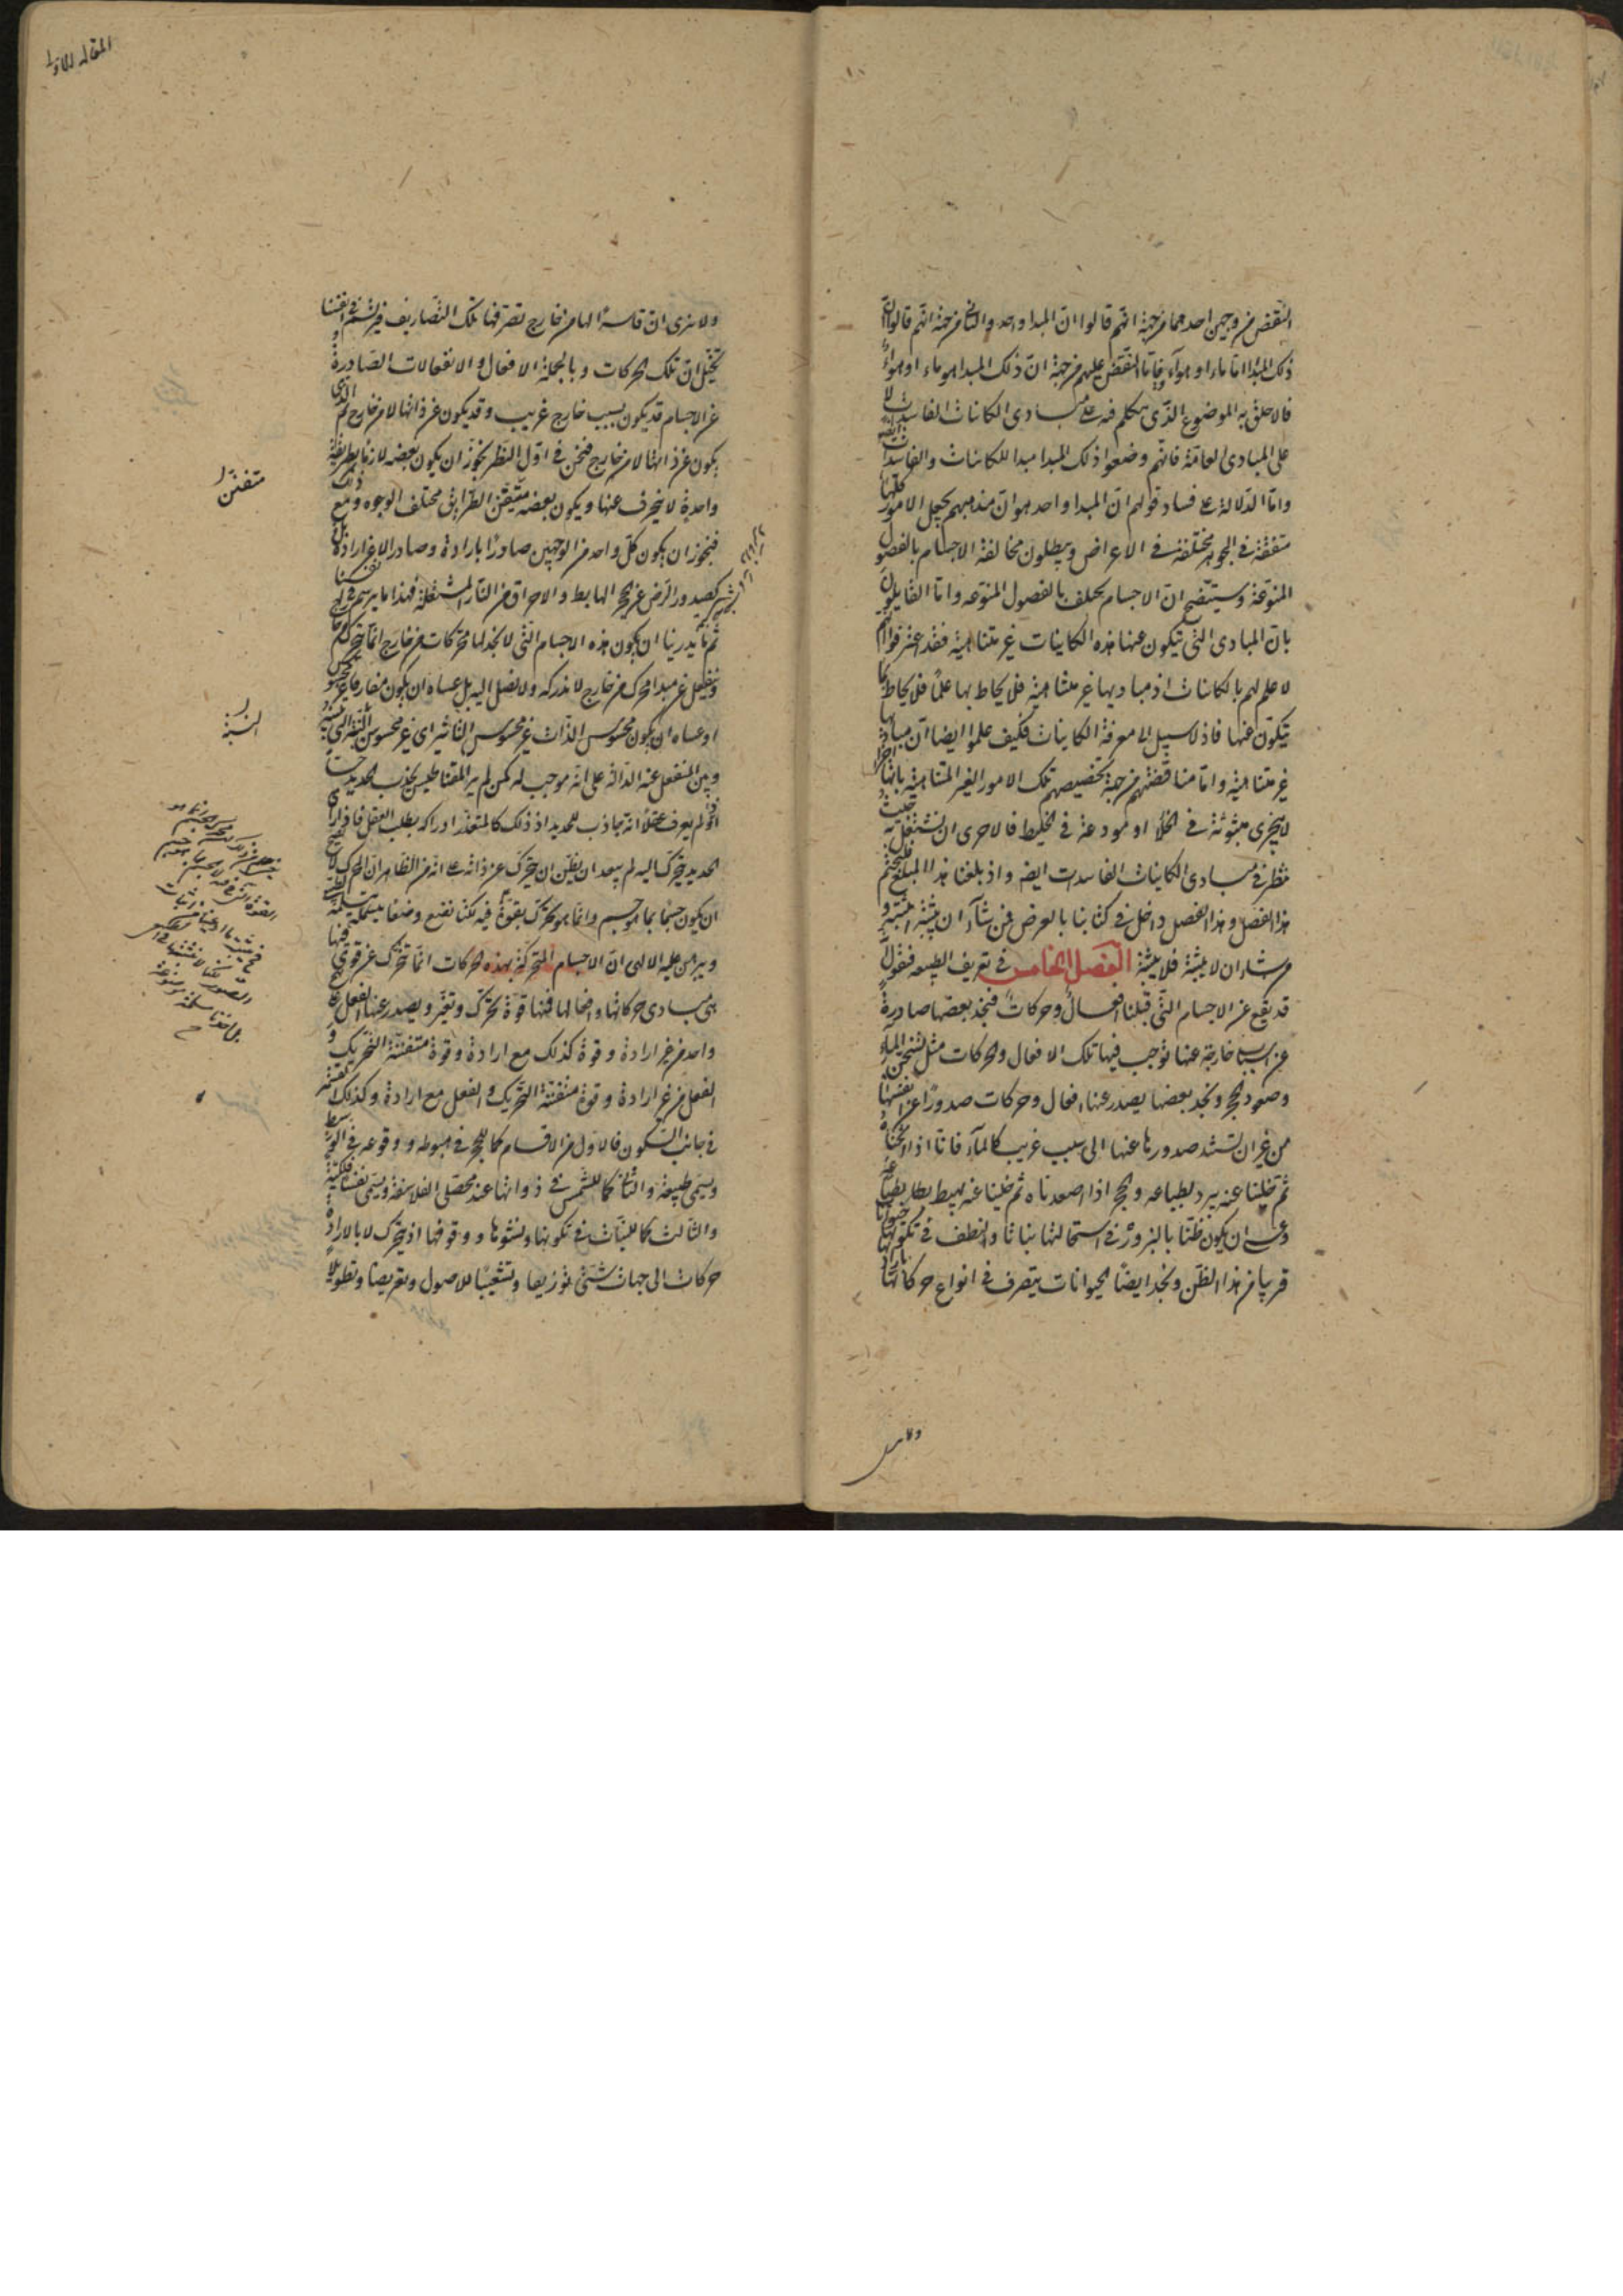 النقض من وجهين احدهما من جهة انهم قالوا ان المبدا واحد والثانى من جهة انهم قالوا ان
ذلك المبدا اما ماء او هواء فاما النقض عليهم من جهة ان ذلك المبدا هو ماء او هواء
فالاخلق به الموضوع الذى نتكلم فيه على مبادى الكائنات الفاسدات لا
على المبادى العامة فانهم وضعوا ذلك المبدا مبدا للكائنات والفاسدات
واما الدلالة على فساد قولهم ان المبدا واحد هو ان مذهبهم يجعل الامور كلها
متفقة فى الجوهر مختلفة فى الاعراض ويبطلون مخالفة الاجسام بالفصول
المنوعة وسيتضح ان الاجسام تختلف بالفصول المنوعة واما القايلون
بان المبادى التى تتكون عنها هذه الكاينات غير متناهية فقد اعترفوا انهم
لا علم لهم بالكائنات اذ مباديها غير متناهية فلا يحاط بها علما فلا يحاط بما
يتكون عنها فاذ لا سبيل الى معرفة الكاينات فكيف علموا ايضا ان مباديها
غير متناهية واما مناقضتهم من جهة تخصيصهم تلك الامور الغير المتناهية بانها اجزا
لا تتجزى مبثوثة فى الخلأ او مودعة فى الخليط فالاحرى ان نشتغل به حيث
ننظر فى مبادى الكاينات الفاسدات ايضه واذ بلغنا هذا المبلغ فلنختم
هذا الفصل وهذا الفصل داخل فى كتابنا بالعرض فمن شآء ان يثبته اثبته و
من شاء ان لا يثبته فلا يثبته الفصل الخامس فى تعريف الطبيعه فنقول
قد تقع عن الاجسام التى قبلنا افعال وحركات فنجد بعضها صادرة
عن اسباب خارجة عنها توجب فيها تلك الافعال والحركات مثل تسخن الماء
وصعود الحجر ونجد بعضها يصدر عنها افعال وحركات صدورا عن انفسها
من غير ان تستند صدورها عنها الى سبب غريب كالمآء فانا اذا سخناه
ثم خلينا عنه يبرد بطباعه والحجر اذا اصعدناه ثم خلينا عنه يهبط بطباعه
وعسى ان يكون ظننا بالبزور فى استحالتها نباتا والنطف فى تكونها حيوانا
قريبا من هذا الظن ونجد ايضا الحيوانات يتصرف فى انواع حركاتها بارادتها
ولا نرى
المقالة الاولى
ولا نرى ان قاسرا لها من خارج يصرفها تلك التصاريف فيرتسم فى انفسنا
تخيل ان تلك الحركات وبالجملة الافعال والانفعالات الصادرة
عن الاجسام قد يكون بسبب خارج غريب وقد يكون عن ذاتها لا من خارج ثم الذى
يكون عن ذاتها لا من خارج فنحن فى اول النظر نجوز ان يكون بعضه لازما طريقة
واحدة لا ينحرف عنها ويكون بعضه متفنن الطرايق مختلف الوجوه ومع ذلك
فيجوز ان يكون كل واحد من الوجهين صادرا بارادة وصادرا لا عن ارادة بل
كصدور الرض عن الحجر الهابط والاحراق من النار المشتعلة فهذا ما يرتسم فى انفسنا
ثم ما يدرينا ان يكون هذه الاجسام التى لا نجد لها محركات من خارج انما تتحرك
وتنفعل عن مبدا محرك من خارج لا ندركه ولا نصل اليه بل عساه ان يكون مفارقا غير محسوس
او عساه ان يكون محسوس الذات غير محسوس التاثير اى غير محسوس النسبة التى بينه
وبين المنفعل عنه الدالة على انه موجب له كمن لم ير المقناطيس يجذب الحديد حسا
او لم يعرف عقلا انه جاذب للحديد اذ ذلك كالمتعذر ادراكه بطلب العقل فاذا راى
الحديد يتحرك اليه لم يبعد ان يظن انه يتحرك عن ذاته على انه من الظاهر ان المحرك لا يصح
ان يكون جسما بما هو جسم وانما هو يحرك بقوة فيه لكنا نضع وضعا يتسلمه الطبيعى
ويبرهن عليه الالهى ان الاجسام المتحركة بهذه الحركات انما تتحرك عن قوى فيها
هى مبادى حركاتها وافعالها فمنها قوة تحرك وتغير ويصدر عنها الفعل على نهج
واحد من غير ارادة وقوة كذلك مع ارادة وقوة متفننة التحريك و
الفعل من غير ارادة وقوة متفننة التحريك والفعل مع ارادة وكذلك القسمة
فى جانب السكون فالاول من الاقسام كما للحجر فى هبوطه ووقوعه فى الوسط
ويسمى طبيعة والثانى كما للشمس فى دورانها عند محصلى الفلاسفة ويسمى نفسا فلكية
والثالث كما للنبات فى تكونها ونشوها ووقوفها اذ يتحرك لا بالارادة
حركات الى جهات شتى توزيعا وتشعيبا للاصول وتعريضا وتطويلا
متفننا
النسبة